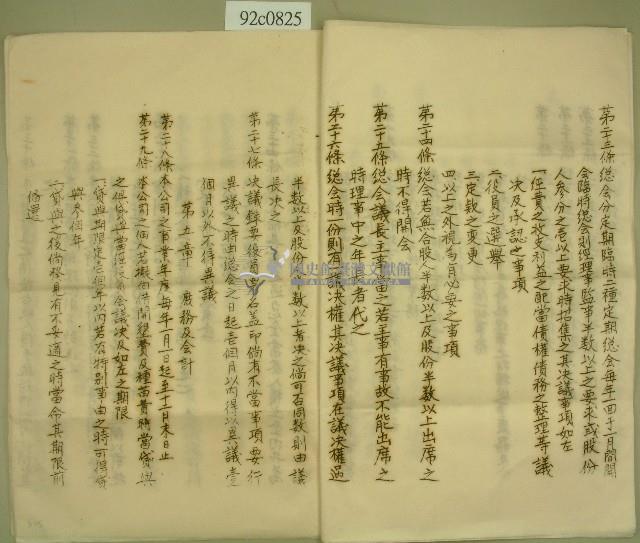 92c0825
第二十三條 總會分定期臨時二種定期總會每年四十二月間開
會臨時總會則經理事監事半數以上之要求或股份
人參分之壱以上要求時招集之其決議事項如左
一任責之收支利益之配當債權債務之整理等議
決及承認之事項
二役員之選舉
三定款之變更
四以上之外視為有必要之事項
第二十四條 總會若無合股人半數以上及股份半數以上出席之
時不得開會
第二十五條 總會議長主事當之若主事有事故不能出席之
時理事中之年長者代之
第二十六條 總會時份則有決權其決議事項在議決權過
半數以上及股份半數以上者決之倘可否同數則由議
長決之
第二十七條 決議錄要役員署名蓋印倘有不當事項要行
異議之時由總會之日起壱個月以內得以異議壱
個月以外不得異議
第五章 庶務及會計
第二十八條 本公司之事業年度每年一月一日起至十二月末日止
第二十九條 本公司之個人若擬個開墾費及種苗費時當貸與
之但貸與當經役員會議決及如左之期限
一貸與期限定壱個年以內若有特別事由之時可得貸
與參個年
二貸與之後倘發見有不妥適之時當令其期限前
償還
國史館臺灣文獻館